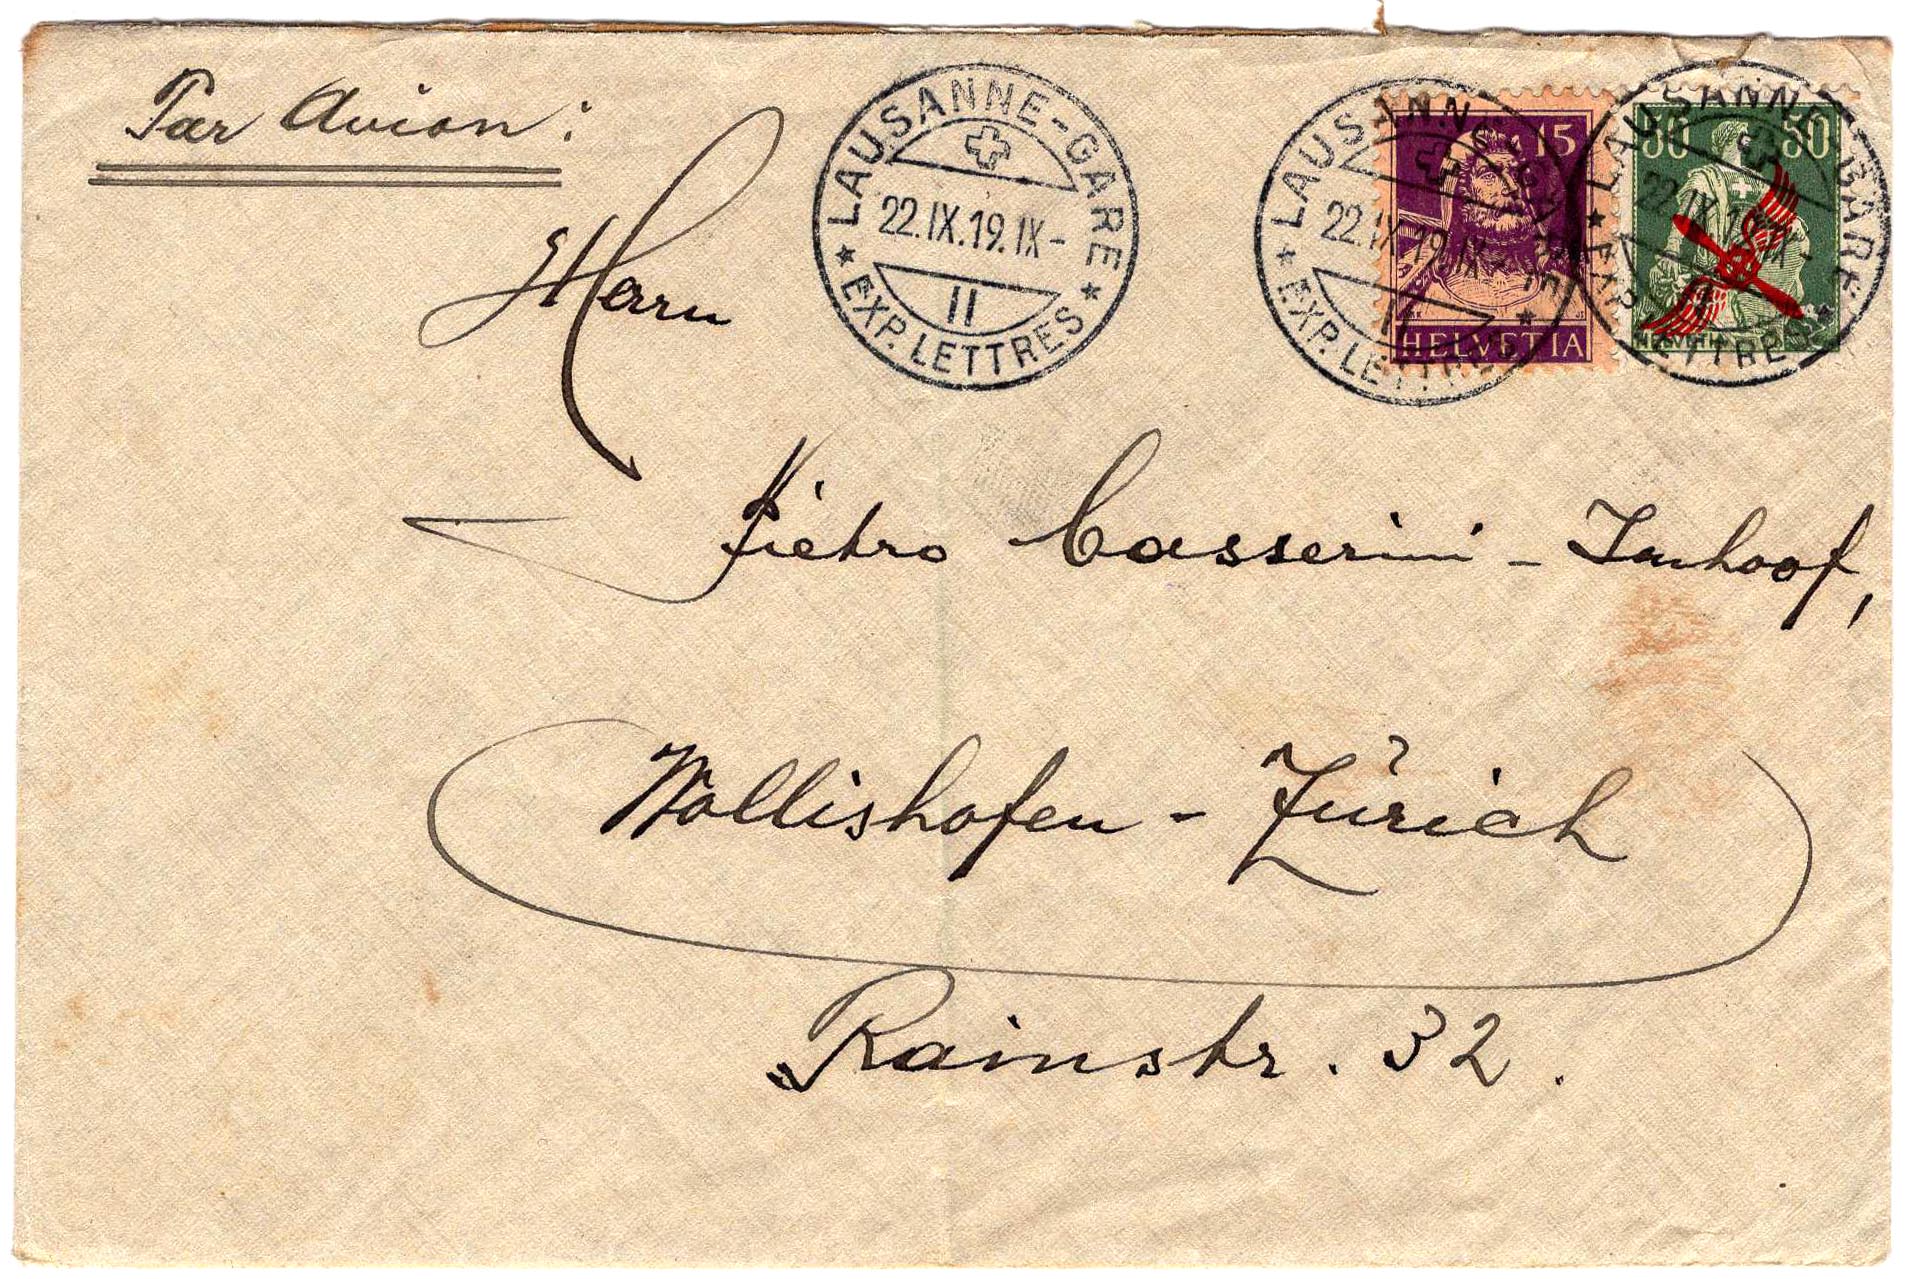 Par Avion:
LAUSANNE-GARE
22.IX.19.IX-
II
* EXP. LETTRES *
LAUSANNE-GARE
22.IX.19.IX-
II
* EXP. LETTRES *
15
HELVETIA
LAUSANNE-GARE
22.IX.19.IX-
II
* EXP. LETTRES *
50 50
HELVETIA
Herrn
Pietro Casserini - Imhoof,
Wollishofen - Zürich
Rainstr. 32.